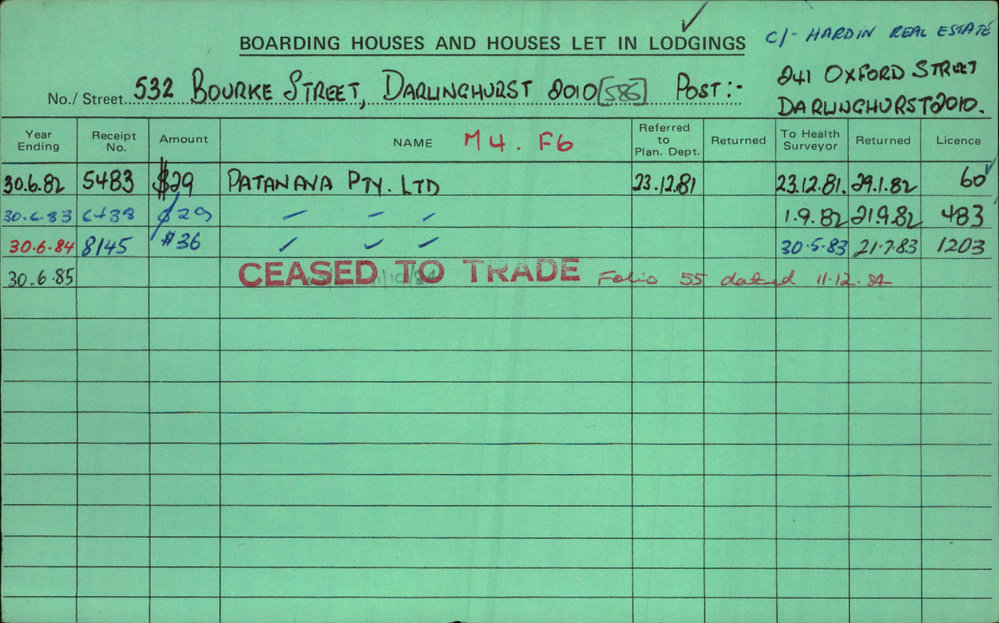 BOARDING HOUSES AND HOUSES LET IN LODGINGS C/- HARDIN REAL ESTATE
No./ Street 532 BOURKE STREET, DARLINGHURST 2010 [586] POST:- 241 OXFORD STREET
DARLINGHURST 2010.
Year Ending Receipt No. Amount NAME M4. F6 Referred to Plan. Dept. Returned To Health Surveyor Returned Licence
30.6.82 5483 $29 PATANAVA PTY. LTD 23.12.81 23.12.81. 29.1.82 60
30.6.83 6438 $29 1.9.82 21.9.82 483
30.6.84 8145 $36 30.5.83 21.7.83 1203
30.6.85 CEASED TO TRADE Folio 55 dated 11.12.84